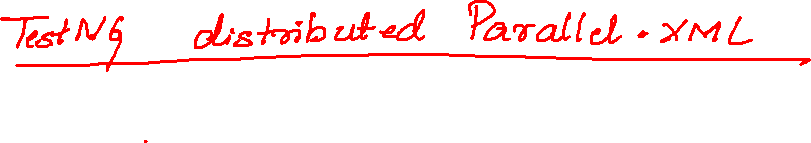 TestNG distributed Parallel.XML